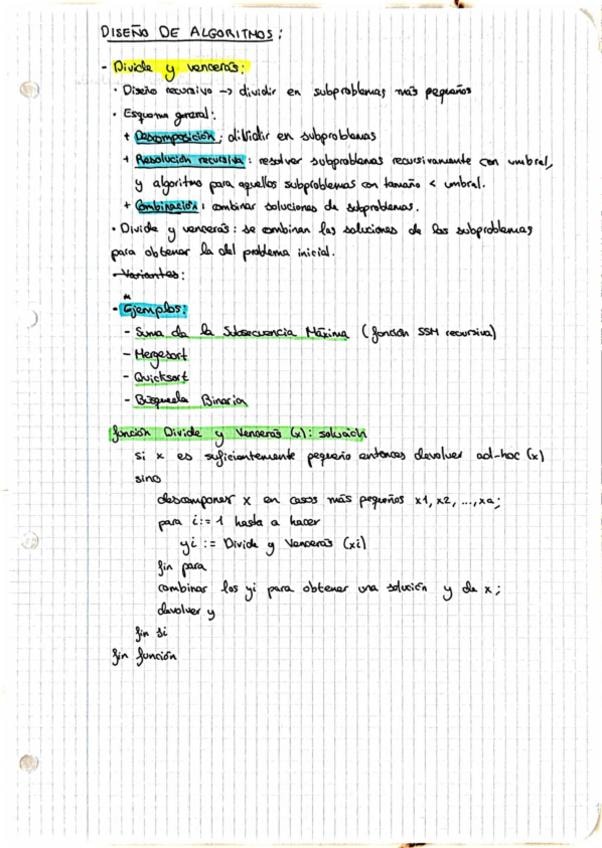 DISEÑO DE ALGORITMOS:
- Divide y vencerás:
· Diseño recursivo -> dividir en subproblemas más pequeños
· Esquema general:
+ Descomposición: dividir en subproblemas
+ Resolución recursiva: resolver subproblemas recursivamente con umbral,
y algoritmo para aquellos subproblemas con tamaño < umbral.
+ Combinación: combinar soluciones de subproblemas.
· Divide y vencerás: se combinan las soluciones de los subproblemas
para obtener la del problema inicial.
- Variantes:
· Ejemplos:
- Suma de la Subsecuencia Máxima (función SSM recursiva)
- Mergesort
- Quicksort
- Búsqueda Binaria
función Divide y Vencerás (x): solución
si x es suficientemente pequeño entonces devolver ad-hoc (x)
sino
descomponer x en casos más pequeños x1, x2, ..., xa;
para i:= 1 hasta a hacer
yi := Divide y Vencerás (xi)
fin para
combinar los yi para obtener una solución y de x;
devolver y
fin si
fin función